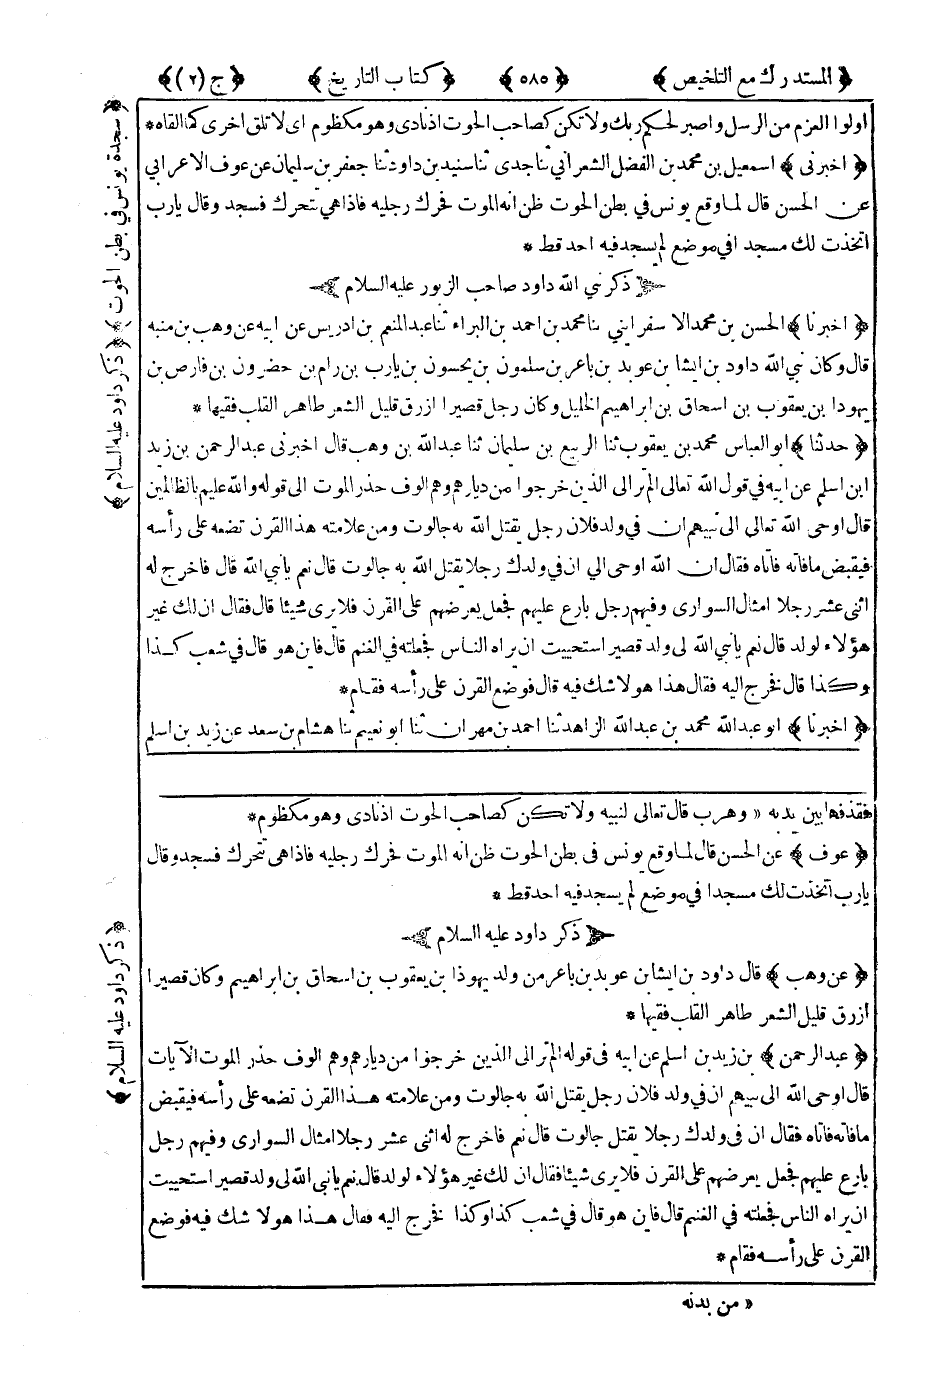 ﴿ المستدرك مع التلخيص ﴾ ﴿ ٥٨٥ ﴾ ﴿ كتاب التاريخ ﴾ ﴿ ج (٢) ﴾
اولوا العزم من الرسل واصبر لحكم ربك ولا تكن كصاحب الحوت اذ نادى وهو مكظوم اى لا تلق اخرى كما القاه *
﴿ اخبرنى ﴾ اسمعيل بن محمد بن الفضل الشعرانى ثنا جدى ثنا سنيد بن داود ثنا جعفر بن سليمان عن عوف الاعرابي
عن الحسن قال لما وقع يونس في بطن الحوت ظن انه الموت فحرك رجليه فاذا هي تتحرك فسجد وقال يارب
اتخذت لك مسجدا في موضع لم يسجد فيه احد قط *
ذكر نبي الله داود صاحب الزبور عليه السلام
﴿ اخبرنا ﴾ الحسن بن محمد الاسفرايني ثنا محمد بن احمد بن البراء ثنا عبد المنعم بن ادريس عن ابيه عن وهب بن منبه
قال وكان نبي الله داود بن ايشا بن عويد بن باعر بن سلمون بن يحسون بن يارب بن رام بن حضرون بن فارص بن
يهودا بن يعقوب بن اسحاق بن ابراهيم الخليل وكان رجل قصيرا ازرق قليل الشعر طاهر القلب فقيها *
﴿ حدثنا ﴾ ابو العباس محمد بن يعقوب ثنا الربيع بن سليمان ثنا عبد الله بن وهب قال اخبرنى عبد الرحمن بن زيد
ابن اسلم عن ابيه في قول الله تعالى الم تر الى الذين خرجوا من ديارهم وهم الوف حذر الموت الى قوله والله عليم بالظالمين
قال اوحى الله تعالى الى نبيهم ان في ولد فلان رجل يقتل الله به جالوت ومن علامته هذا القرن تضعه على رأسه
فيقبض ماءآته فاتاه فقال ان الله اوحى الي ان في ولدك رجلا يقتل الله به جالوت قال نعم يا نبي الله قال فاخرج له
اثنى عشر رجلا امثال السوارى وفيهم رجل بارع عليهم فجعل يعرضهم على القرن فلا يرى شيئا قال فقال ان لك غير
هؤلاء لولد قال نعم يا نبي الله لى ولد قصير استحييت ان يراه الناس فجعلته في الغنم قال فاين هو قال في شعب كذا
وكذا قال فخرج اليه فقال هذا هو لا شك فيه قال فوضع القرن على رأسه فقام *
﴿ اخبرنا ﴾ ابو عبد الله محمد بن عبد الله الزاهد ثنا احمد بن مهران ثنا ابو نعيم ثنا هشام بن سعد عن زيد بن اسلم
فقذفها بين يديه « وهرب قال تعالى لنبيه ولا تكن كصاحب الحوت اذ نادى وهو مكظوم *
﴿ عوف ﴾ عن الحسن قال لما وقع يونس فى بطن الحوت ظن انه الموت فحرك رجليه فاذا هى تتحرك فسجد وقال
يارب اتخذت لك مسجدا في موضع لم يسجد فيه احد قط *
ذكر داود عليه السلام
﴿ عن وهب ﴾ قال داود بن ايشا بن عويد بن باعر من ولد يهوذا بن يعقوب بن اسحاق بن ابراهيم وكان قصيرا
ازرق قليل الشعر طاهر القلب فقيها *
﴿ عبد الرحمن ﴾ بن زيد بن اسلم عن ابيه فى قوله الم تر الى الذين خرجوا من ديارهم وهم الوف حذر الموت الآيات
قال اوحى الله الى نبيهم ان في ولد فلان رجل يقتل الله به جالوت ومن علامته هذا القرن تضعه على رأسه فيقبض
ماءآته فاتاه فقال ان فى ولدك رجلا يقتل جالوت قال نعم فاخرج له اثنى عشر رجلا امثال السوارى وفيهم رجل
بارع عليهم فجعل يعرضهم على القرن فلا يرى شيئا فقال ان لك غير هؤلاء لولد قال نعم يا نبى الله لى ولد قصير استحييت
ان يراه الناس فجعلته في الغنم قال فاين هو قال في شعب كذا وكذا فخرج اليه فقال هذا هو لا شك فيه فوضع
القرن على رأسه فقام *
« من بدنه
﴿ سجدة يونس في بطن الحوت ﴾
﴿ ذكر داود عليه السلام ﴾
﴿ ذكر داود عليه السلام ﴾